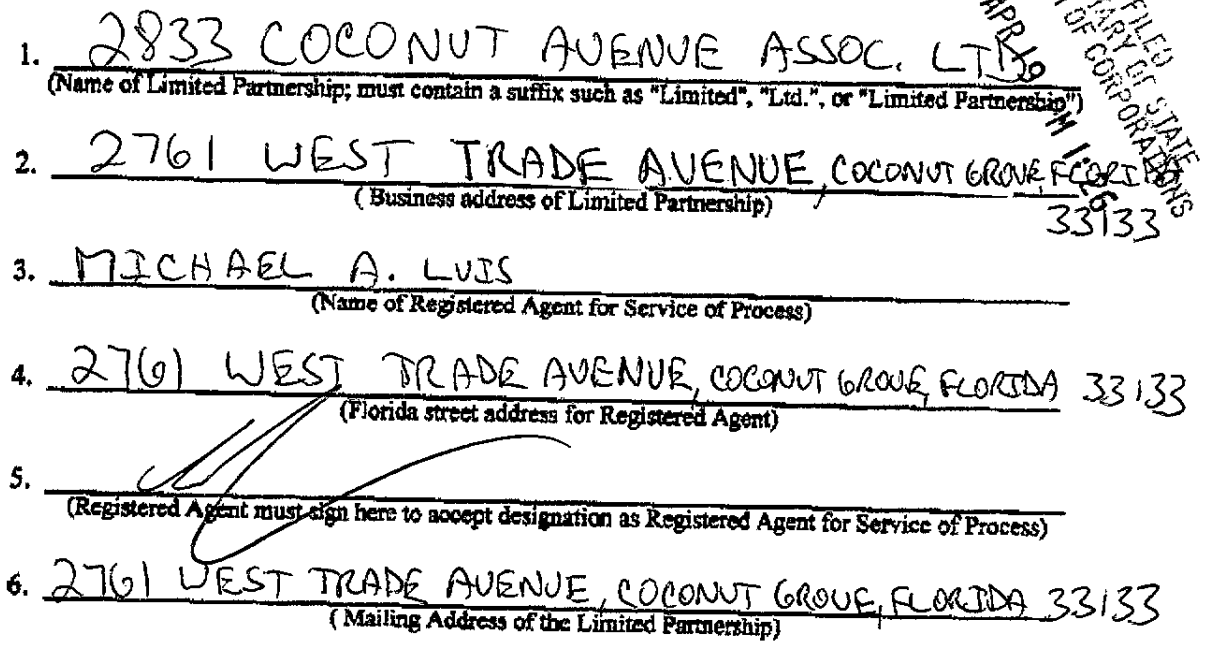 FILED
SECRETARY OF STATE
DIVISION OF CORPORATIONS
APR 10 PM 1:26
1. 2833 COCONUT AVENUE ASSOC. LTD.
(Name of Limited Partnership; must contain a suffix such as "Limited", "Ltd.", or "Limited Partnership")
2. 2761 WEST TRADE AVENUE, COCONUT GROVE, FLORIDA
33133
( Business address of Limited Partnership)
3. MICHAEL A. LUIS
(Name of Registered Agent for Service of Process)
4. 2761 WEST TRADE AVENUE, COCONUT GROVE, FLORIDA 33133
(Florida street address for Registered Agent)
5.
(Registered Agent must sign here to accept designation as Registered Agent for Service of Process)
6. 2761 WEST TRADE AVENUE, COCONUT GROVE, FLORIDA 33133
( Mailing Address of the Limited Partnership)